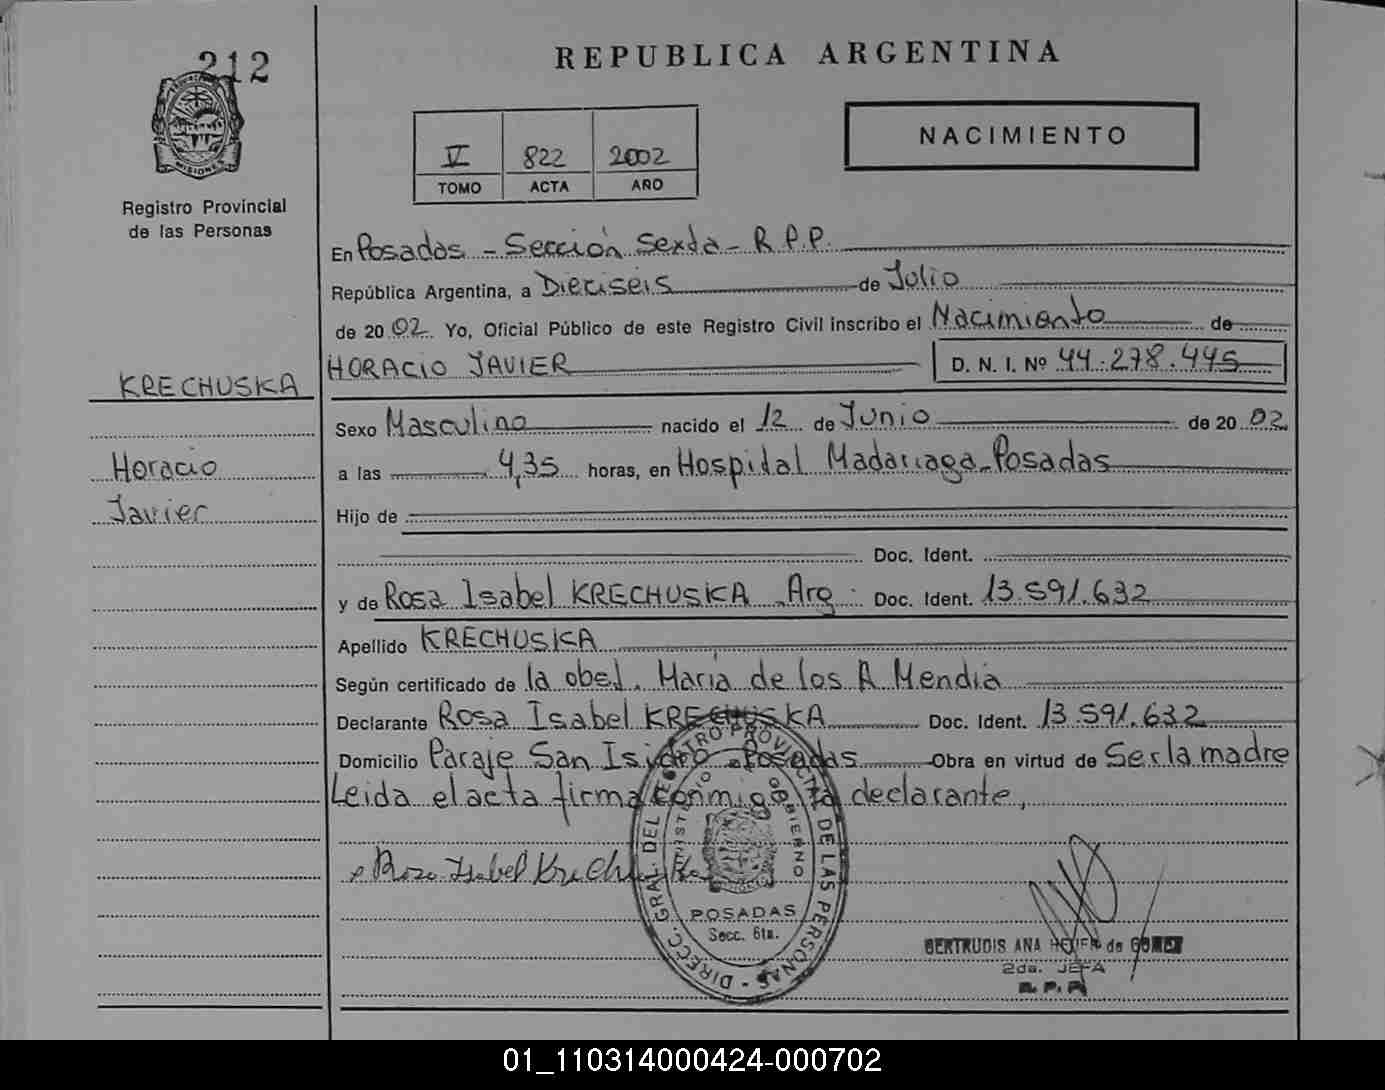 212
REPUBLICA ARGENTINA
MISIONES
Registro Provincial
de las Personas
V 822 2002
TOMO ACTA AÑO
NACIMIENTO
En Posadas - Sección Sexta - R.P.P.
República Argentina, a Dieciseis de Julio
de 20 02 Yo, Oficial Público de este Registro Civil inscribo el Nacimiento de
HORACIO JAVIER D. N. I. Nº 44.278.445
KRECHUSKA
Horacio
Javier
Sexo Masculino nacido el 12 de Junio de 20 02
a las 4,35 horas, en Hospital Madariaga - Posadas
Hijo de
Doc. Ident.
y de Rosa Isabel KRECHUSKA Arg. Doc. Ident. 13.591.632
Apellido KRECHUSKA
Según certificado de la obst. María de los A Mendia
Declarante Rosa Isabel KRECHUSKA Doc. Ident. 13.591.632
Domicilio Paraje San Isidro - Posadas Obra en virtud de Ser la madre
Leida el acta firma conmigo la declarante,
Rosa Isabel Krechuska
DIRECC. GRAL. DEL REGISTRO PROVINCIAL DE LAS PERSONAS
MINISTERIO GOBIERNO
POSADAS
Secc. 6ta.
GERTRUDIS ANA de
2da. JEFA
R. P. P.
01_110314000424-000702